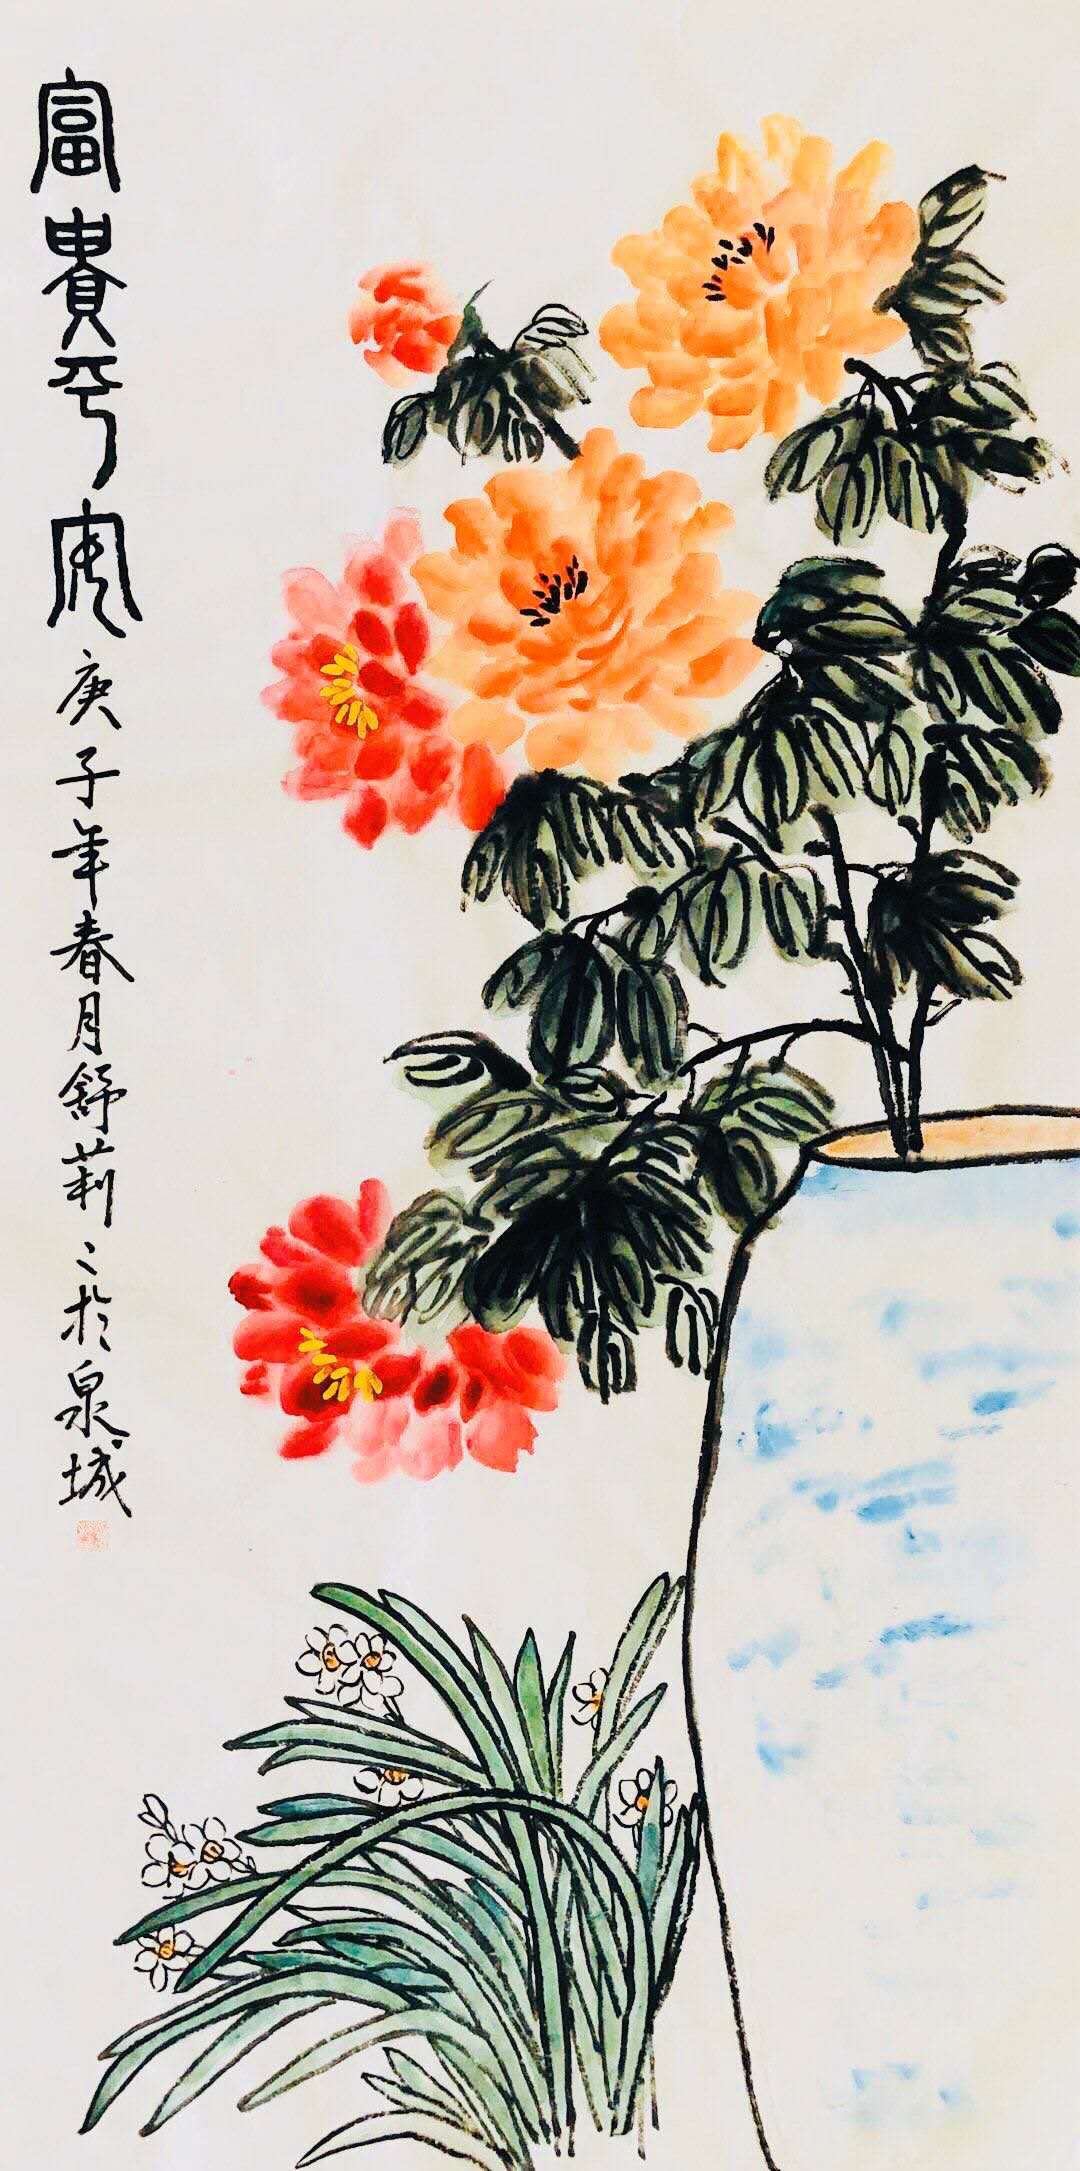 富貴平安
庚子年春月舒莉〻於泉城